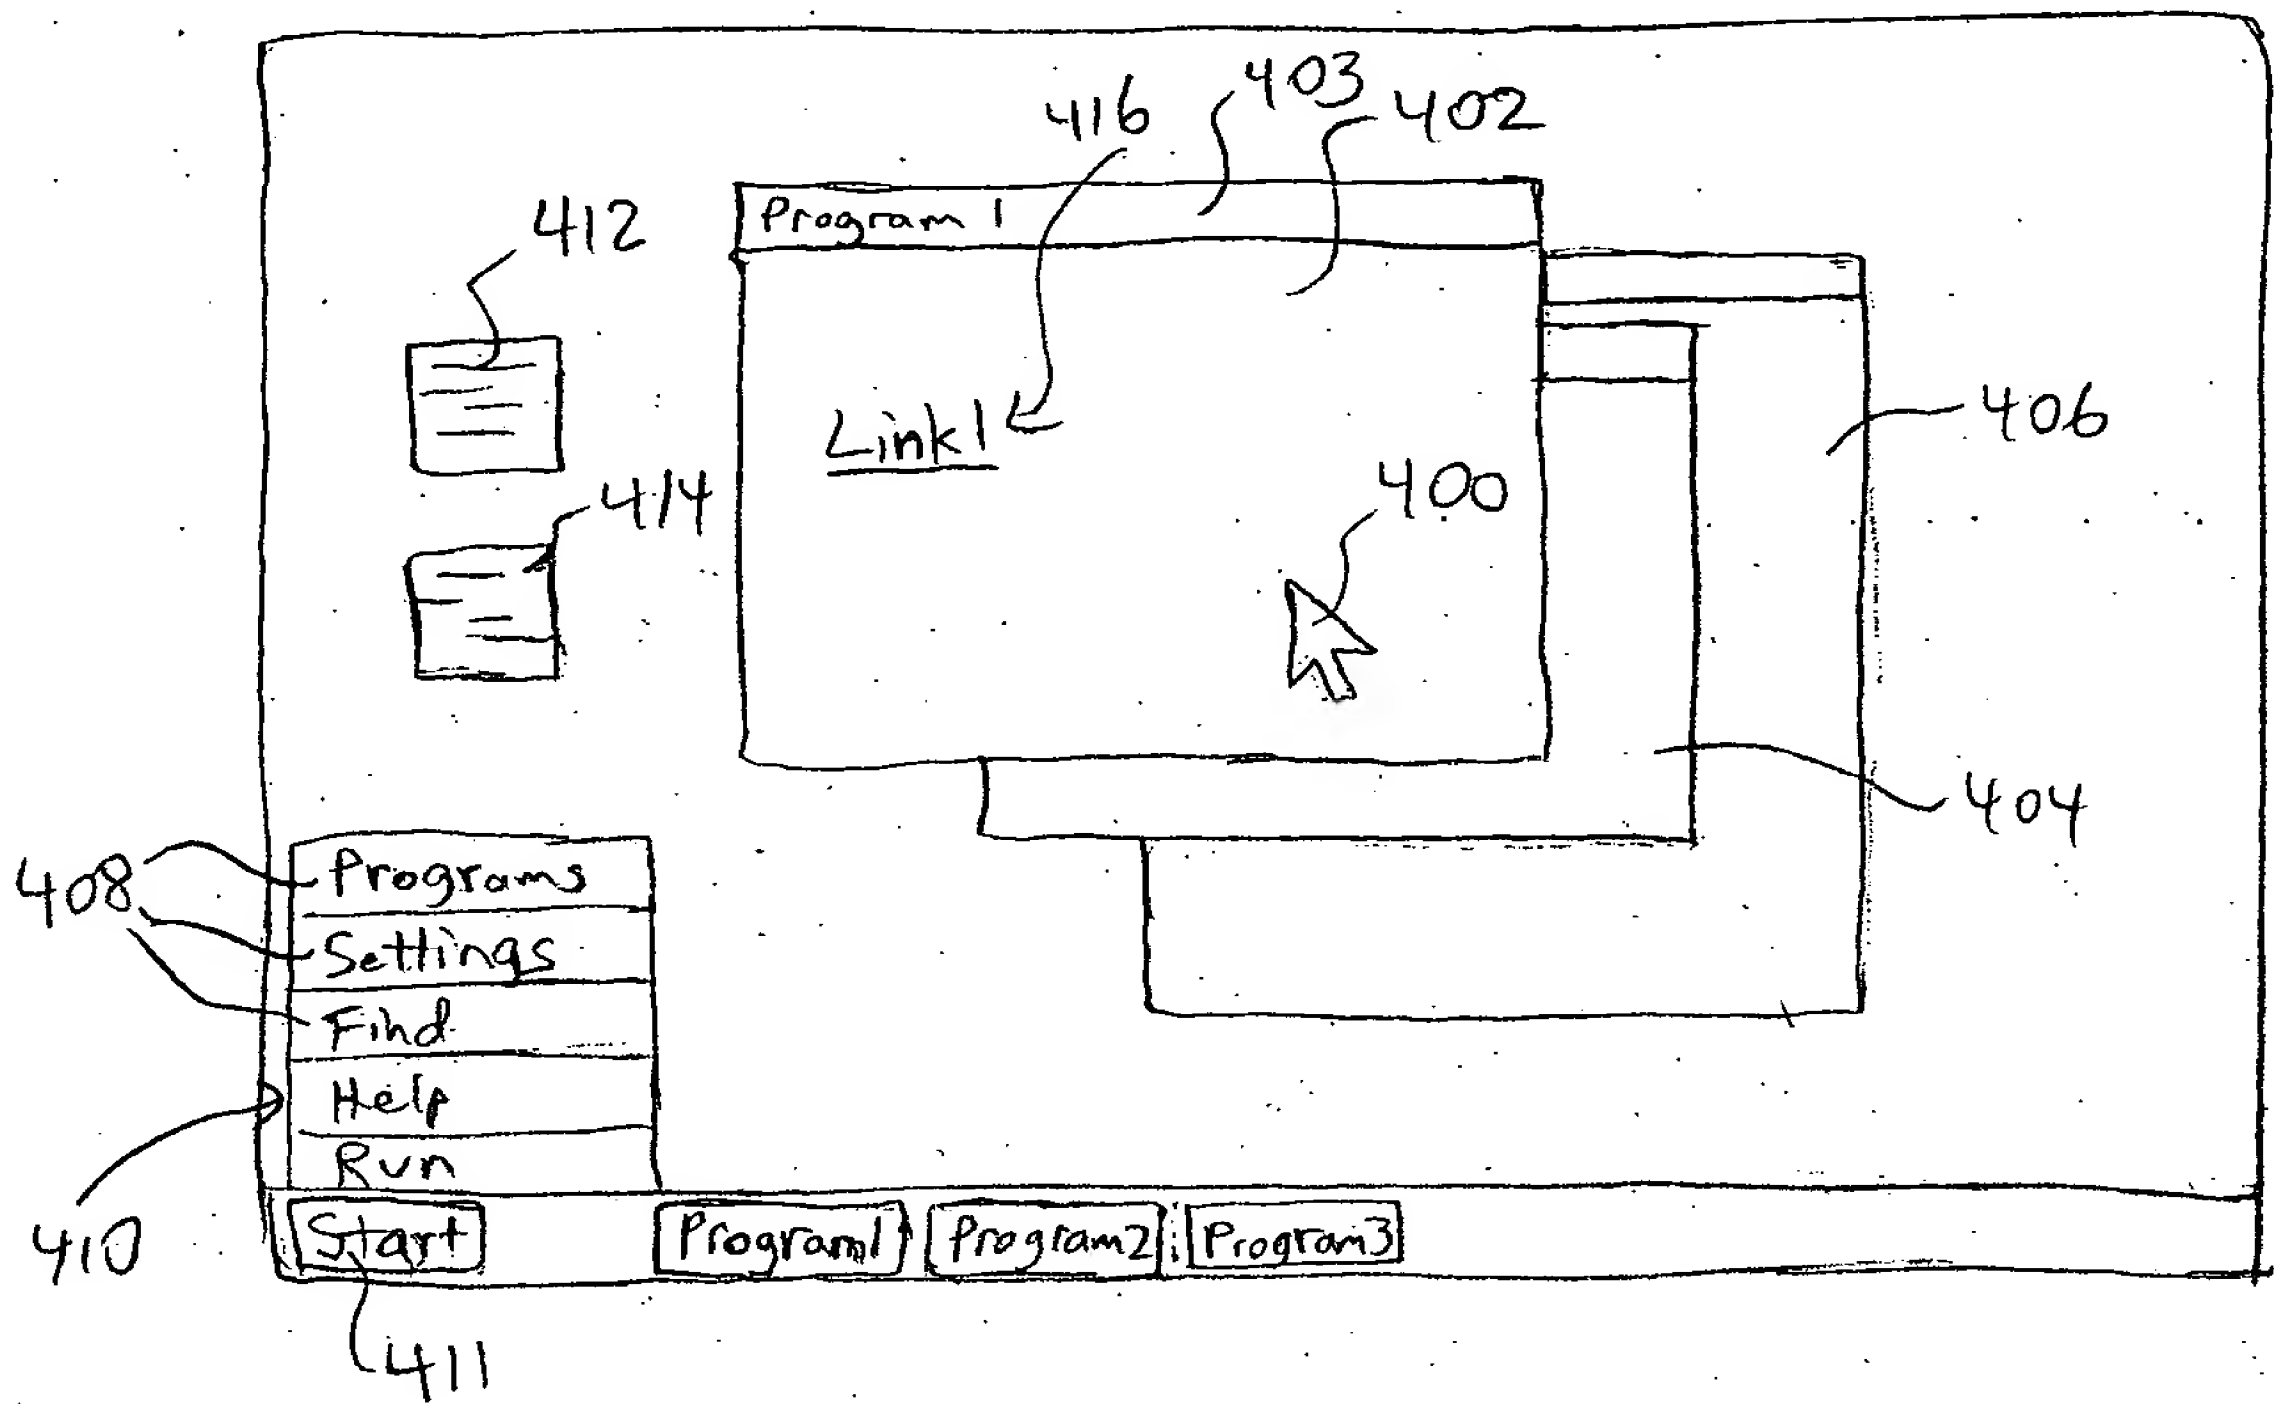 403
416
402
Program 1
412
406
Link1
400
414
404
408
Programs
Settings
Find
Help
Run
410
Start
Program1
Program2
Program3
411